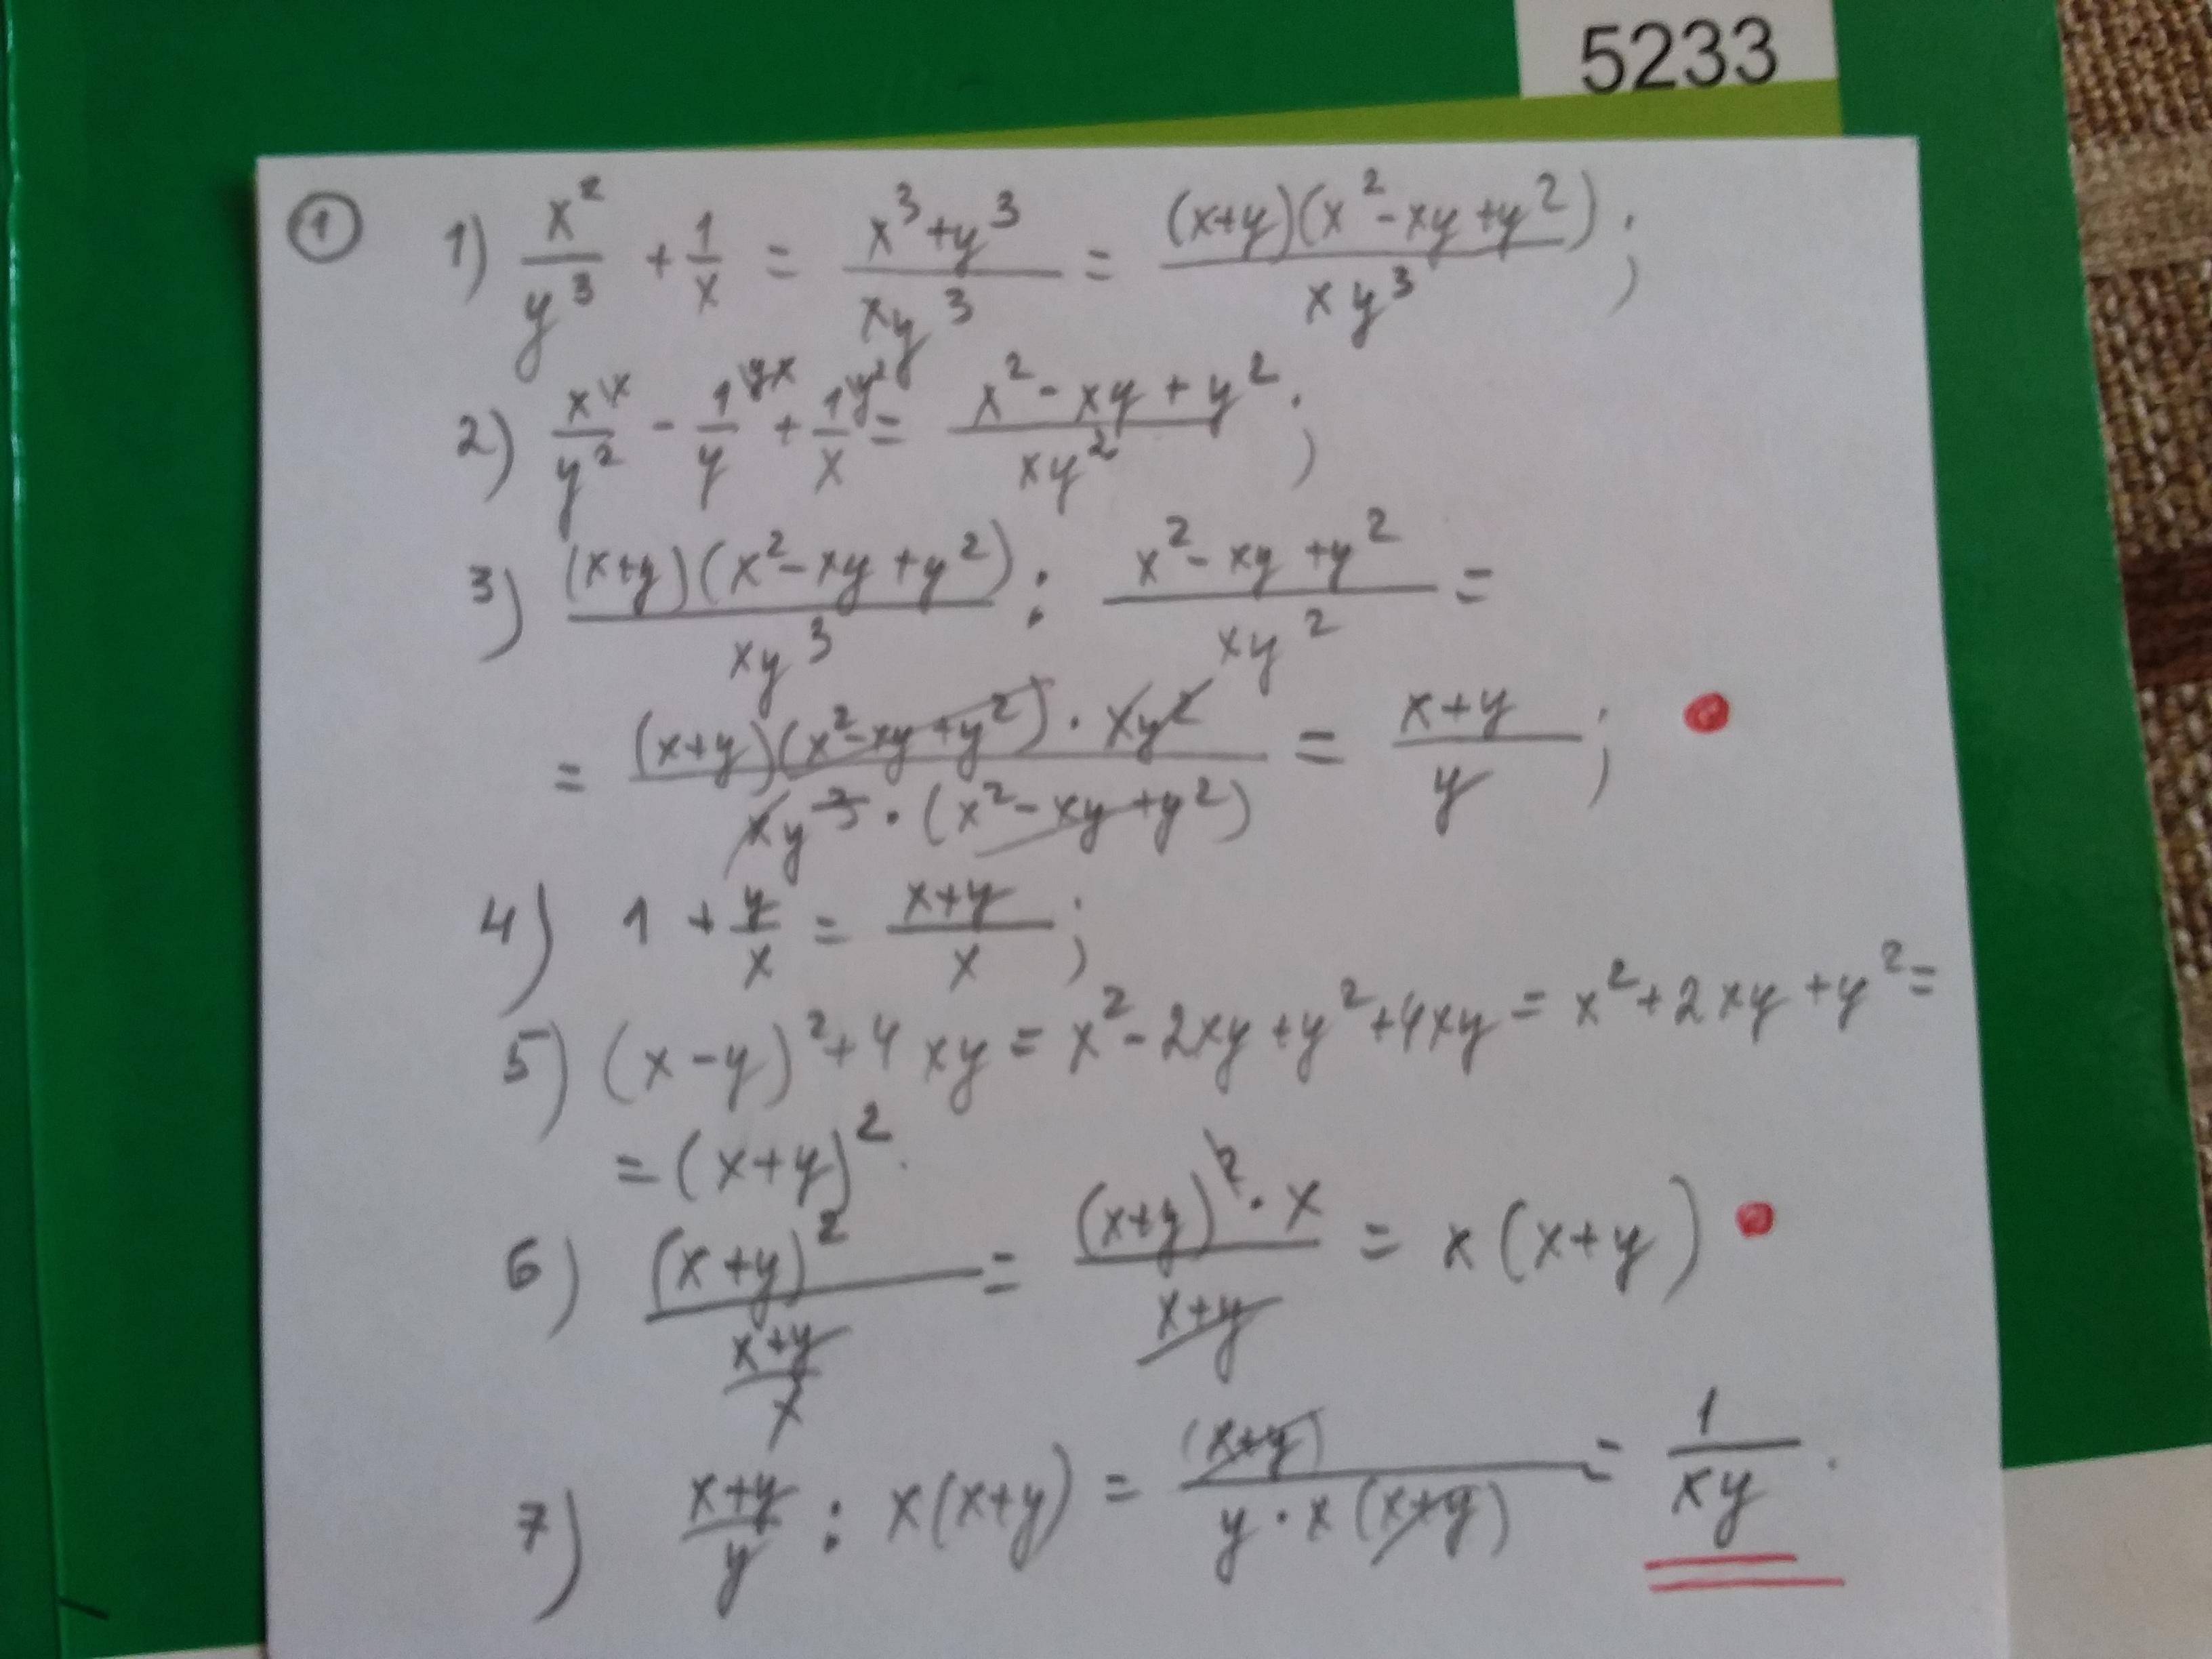 5233
① 1) x²/y³ + 1/x = (x³+y³)/(xy³) = ((x+y)(x²-xy+y²))/(xy³);
2) x\x/y² - 1\yx/y + 1\y²/x = (x²-xy+y²)/(xy²);
3) ((x+y)(x²-xy+y²))/(xy³) : (x²-xy+y²)/(xy²) =
= ((x+y)(x²-xy+y²)·xy²)/(xy³·(x²-xy+y²)) = (x+y)/y;
4) 1 + y/x = (x+y)/x;
5) (x-y)²+4xy = x²-2xy+y²+4xy = x²+2xy+y² =
= (x+y)².
6) (x+y)²/((x+y)/x) = ((x+y)²·x)/(x+y) = x(x+y)
7) (x+y)/y : x(x+y) = (x+y)/(y·x(x+y)) = 1/(xy).